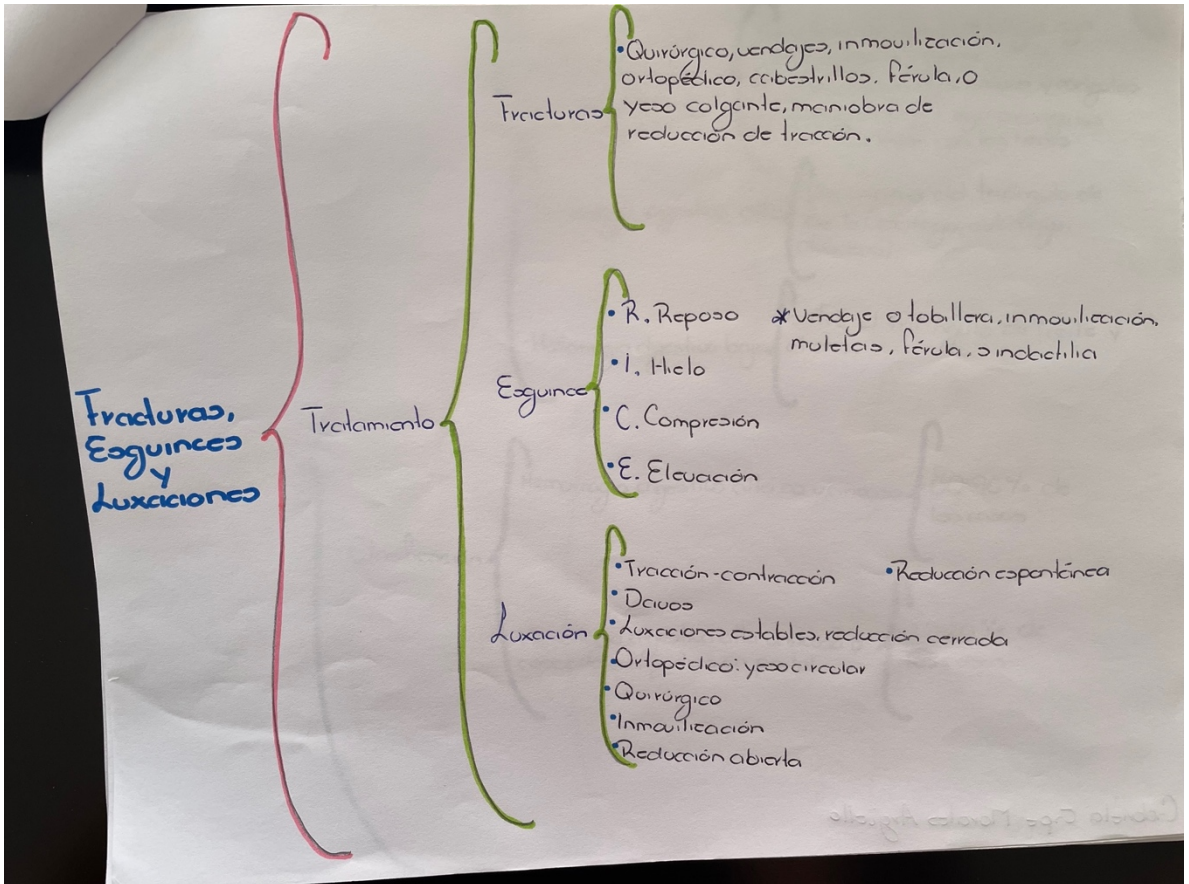 Fracturas,
Esguinces
y
Luxaciones
Tratamiento
Fracturas
• Quirúrgico, vendajes, inmovilización,
ortopédico, cabestrillos, férula, o
yeso colgante, maniobra de
reducción de tracción.
Esguince
• R. Reposo
• I. Hielo
• C. Compresión
• E. Elevación
* Vendaje o tobillera, inmovilización,
muletas, férula, sindactilia
Luxación
• Tracción-contracción
• Davos
• Luxaciones estables, reducción cerrada
• Ortopédico: yeso circular
• Quirúrgico
• Inmovilización
• Reducción abierta
• Reducción espontánea